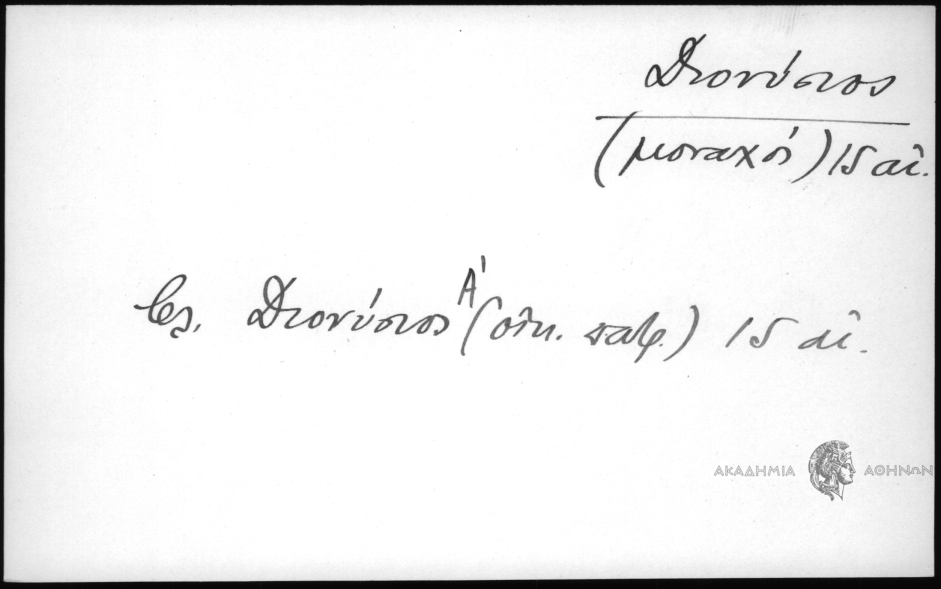 Διονύσιος
(μοναχός) 15 αἰ.
βλ. Διονύσιος Α' (οἰκ. πατρ.) 15 αἰ.
ΑΚΑΔΗΜΙΑ ΑΘΗΝΩΝ